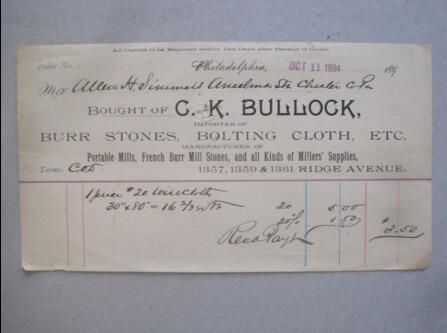 All Claims to be Reported within Ten Days after Receipt of Goods.
Order No.
Philadelphia, OCT 11 1894 189
Mr Allen H. Simmers Anselma Sta Chester Co Pa
BOUGHT OF C. K. BULLOCK,
IMPORTER OF
BURR STONES, BOLTING CLOTH, ETC.
MANUFACTURER OF
Portable Mills, French Burr Mill Stones, and all Kinds of Millers' Supplies,
Terms: 1357, 1359 & 1361 RIDGE AVENUE.
1 piece # 20 Wire Cloth
30" x 80" = 16 2/3 sq ft 20 5.00
20% 1.50
Recd Payt $3.50